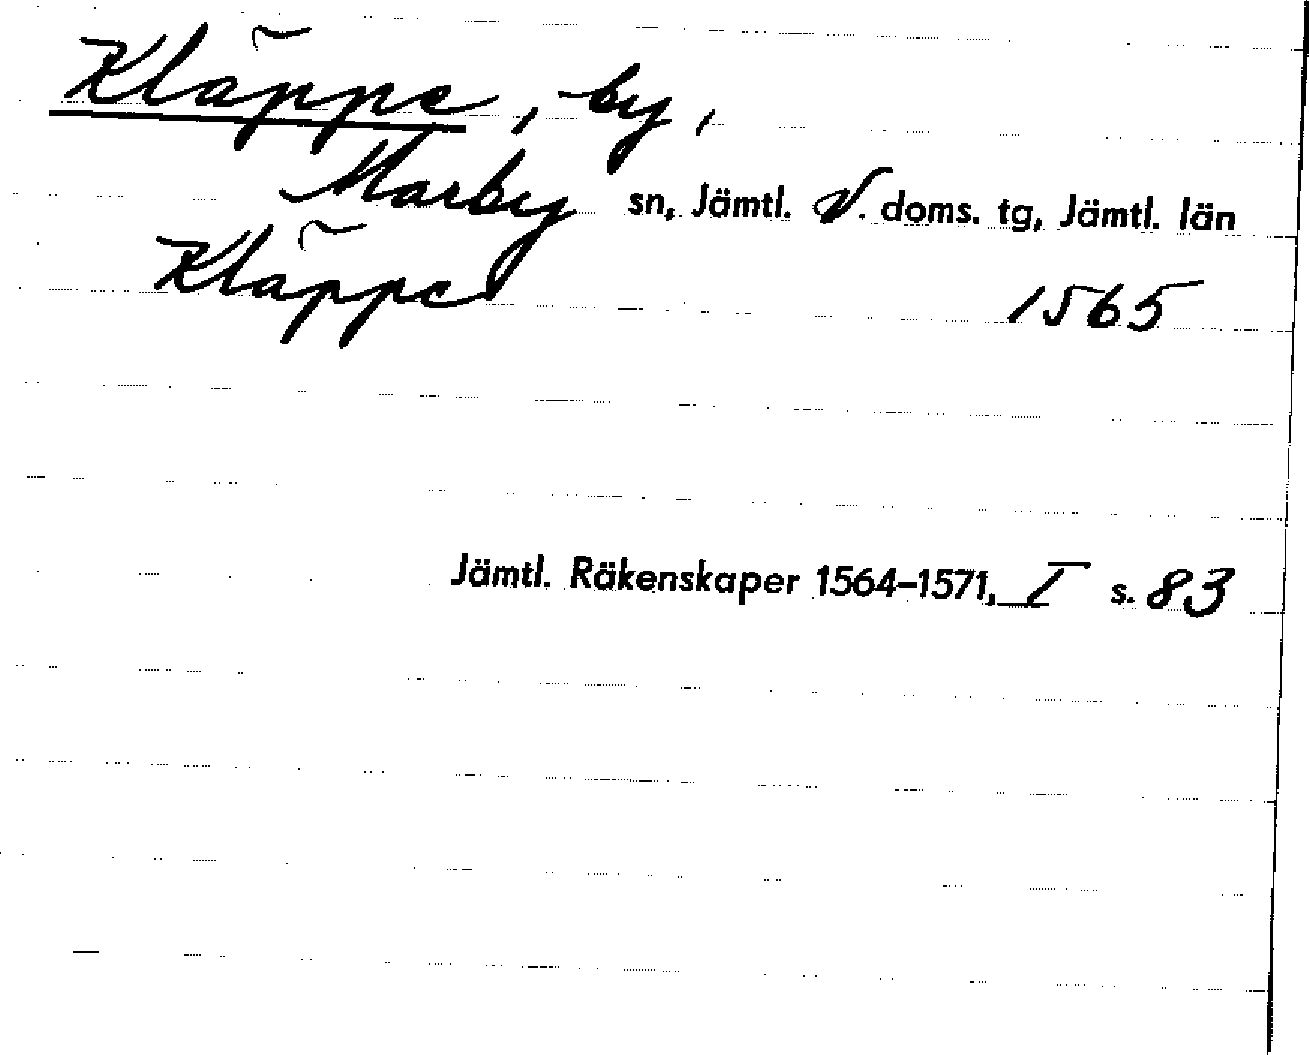 Kläppe, by,
Marby sn, Jämtl. V. doms. tg, Jämtl. län
Kläppe 1565
Jämtl. Räkenskaper 1564-1571, I s. 83